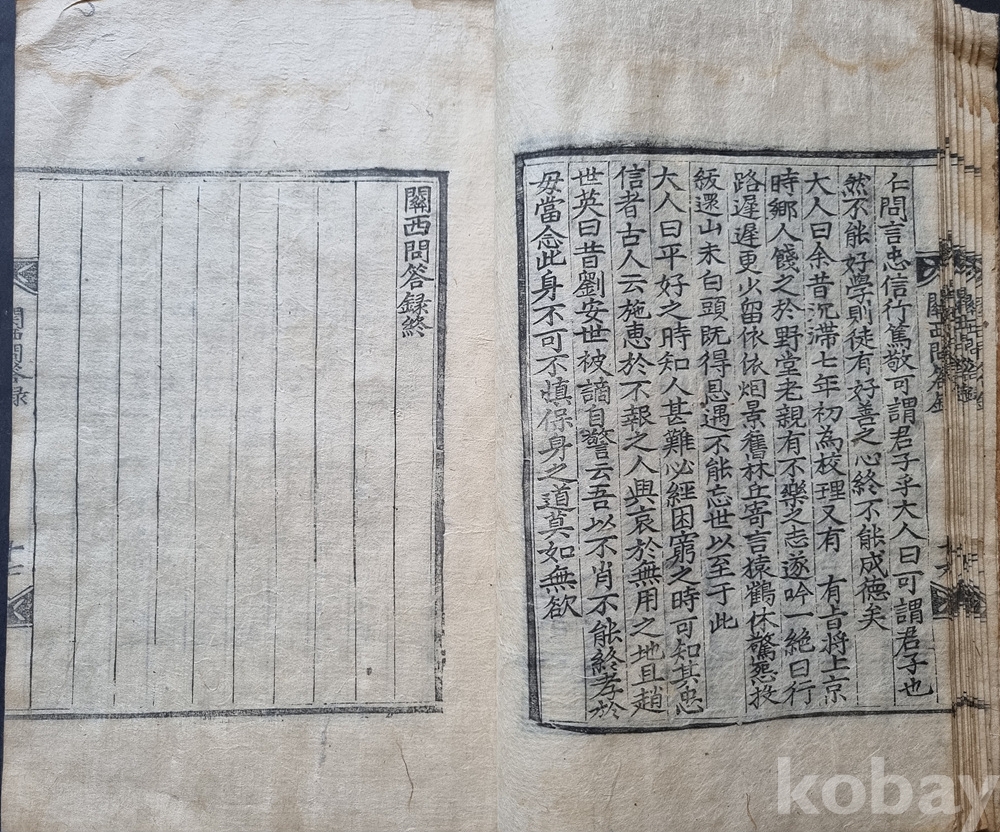 仁問言忠信行篤敬可謂君子乎大人曰可謂君子也
然不能好學則徒有好善之心終不能成德矣
大人曰余昔沉滯七年初為校理又有 有旨將上京
時鄉人餞之於野堂老親有不樂之志遂吟一絶曰行
路遲遲更少留依依烟景舊林丘寄言猿鶴休驚怨投
紱還山未白頭既得恩遇不能忘世以至于此
大人曰平好之時知人甚難必經困窮之時可知其忠
信者古人云施恵於不報之人與哀於無用之地且趙
世英曰昔劉安世被謫自警云吾以不肖不能終孝於
毋當念此身不可不慎保身之道莫如無欲
關西問答録終
關西問答録
關西問答録
kobay